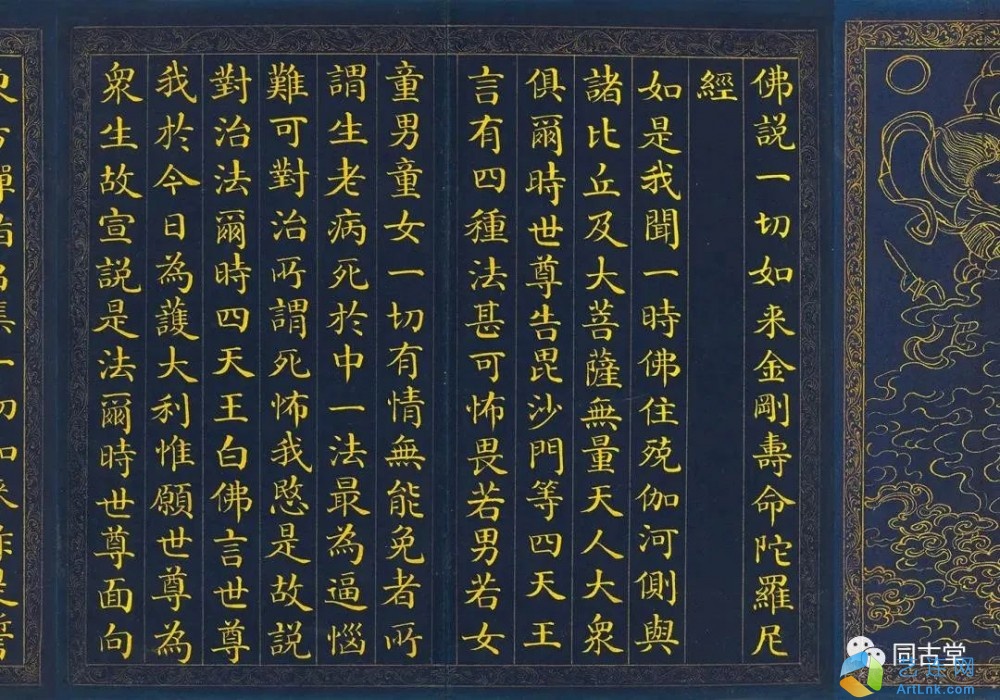 佛説一切如来金剛壽命陀羅尼
經
如是我聞一時佛住殑伽河側與
諸比丘及大菩薩無量天人大衆
俱爾時世尊告毘沙門等四天王
言有四種法甚可怖畏若男若女
童男童女一切有情無能免者所
謂生老病死於中一法最為逼惱
難可對治所謂死怖我愍是故説
對治法爾時四天王白佛言世尊
我於今日為護大利惟願世尊為
衆生故宣説是法爾時世尊面向
同古堂
ArtLnk.com